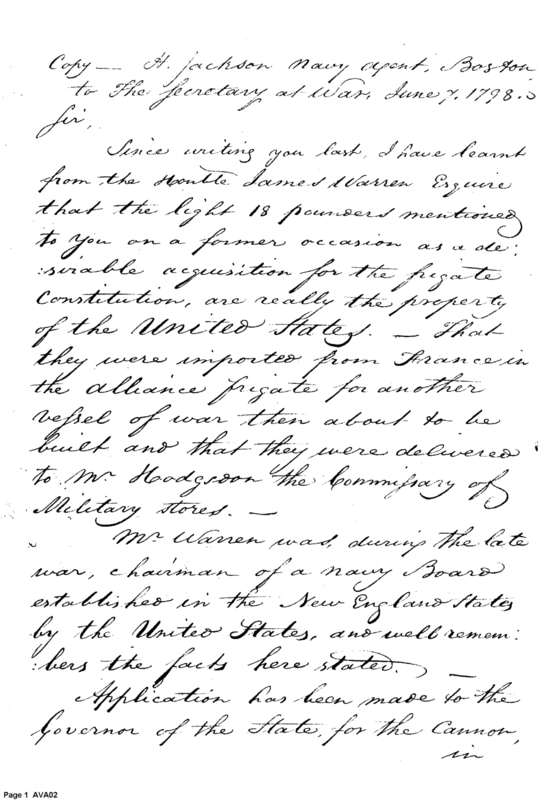 Copy — H. Jackson Navy agent, Boston
to The Secretary at War, June 7. 1798.
Sir,
Since writing you last, I have learnt
from the Honble James Warren Esquire
that the light 18 pounders mentioned
to you on a former occasion as a de:
:sirable acquisition for the frigate
Constitution, are really the property
of the United States. — That
they were imported from France in
the alliance frigate for another
vessel of war then about to be
built and that they were delivered
to Mr Hodgsdon the Commissary of
Military stores. —
Mr Warren was, during the late
war, chairman of a Navy Board
established in the New England States
by the United States, and well remem:
:bers the facts here stated. —
Application has been made to the
Governor of the State, for the Cannon,
in
Page 1 AVA02